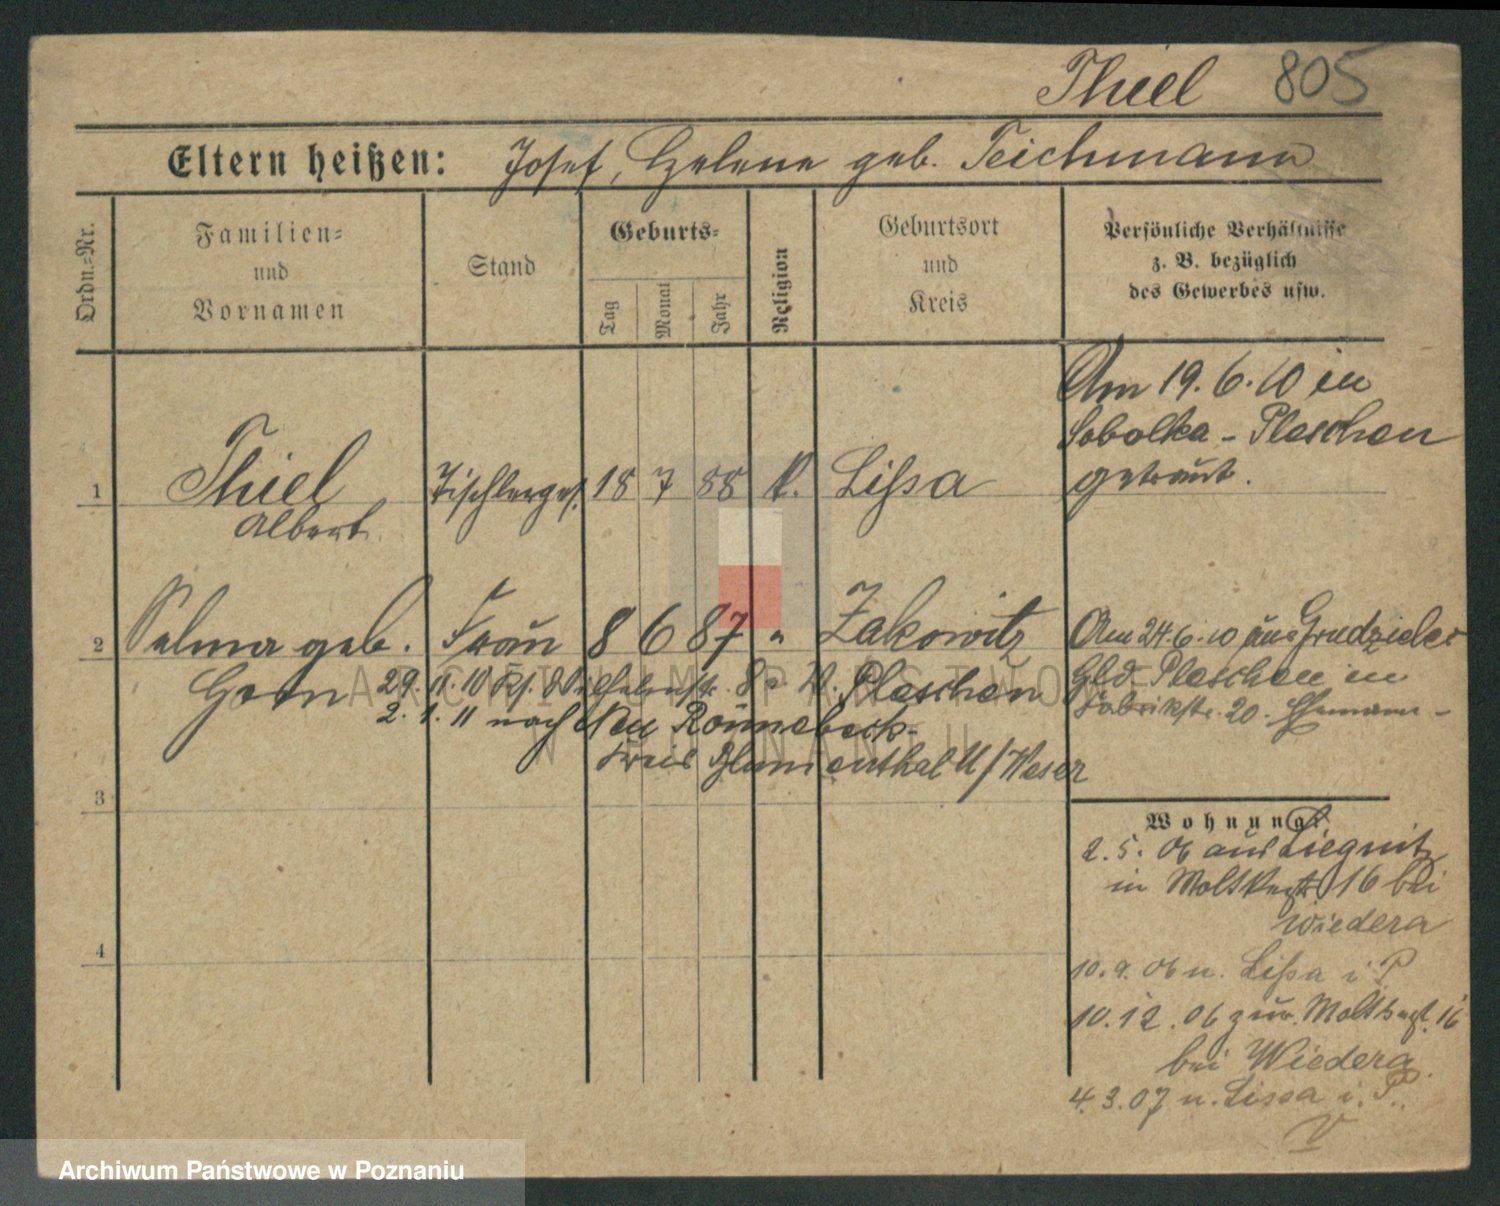 Thiel 805
Eltern heißen: Josef, Helene geb. Teichmann
Ordn.-Nr.
Familien-
und
Vornamen
Stand
Geburts-
Tag
Monat
Jahr
Religion
Geburtsort
und
Kreis
Persönliche Verhältnisse
z. B. bezüglich
des Gewerbes usw.
Am 19. 6. 10 in
Sobolka - Pleschen
getraut.
1 Thiel Tischlerges. 18 7 88 k. Lissa
Albert
2 Selma geb. Frau 8 6 87 " Zakowitz
Horn
Pleschen
Am 24. 6. 10 aus Grudzielec
Gld Pleschen in
Fabrikstr. 20. Ehemann -
29. 11. 10 Wilhelmstr. 8
2. 1. 11 nach Neu Rönnebeck-
Kreis Blumenthal U/Weser
3
4
Wohnung:
2. 5. 06 aus Liegnitz
in Moltkestr 16 bei
Wiedera
10. 9. 06 n. Lissa i P
10. 12. 06 zur. Moltkestr. 16
bei Wiedera.
4. 3. 07 n. Lissa i. P.
V
ARCHIWUM PAŃSTWOWE
W POZNANIU
Archiwum Państwowe w Poznaniu